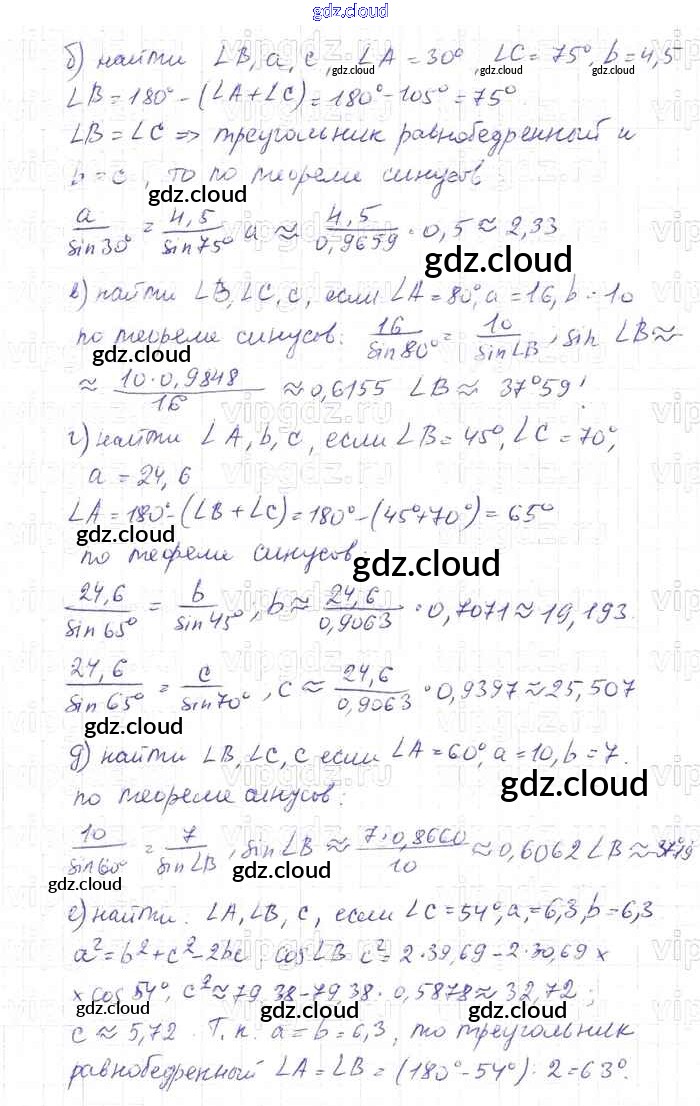 gdz.cloud
б) найти ∠B, a, c, ∠A = 30°, ∠C = 75°, b = 4,5
gdz.cloud gdz.cloud gdz.cloud
∠B = 180° - (∠A + ∠C) = 180° - 105° = 75°.
∠B = ∠C => треугольник равнобедренный и
b = c, то по теореме синусов
gdz.cloud
a/sin30° = 4,5/sin75°, a ≈ 4,5/0,9659 · 0,5 ≈ 2,33
gdz.cloud
в) найти ∠B, ∠C, c, если ∠A = 80°, a = 16, b = 10
по теореме синусов: 16/sin80° = 10/sin∠B, sin ∠B ≈
gdz.cloud
≈ 10·0,9848/16 ≈ 0,6155 ∠B ≈ 37°59'
г) найти ∠A, b, c, если ∠B = 45°, ∠C = 70°,
a = 24,6
∠A = 180° - (∠B + ∠C) = 180° - (45°+70°) = 65°
по теореме синусов:
gdz.cloud
24,6/sin65° = b/sin45°, b ≈ 24,6/0,9063 · 0,7071 ≈ 19,193.
24,6/sin65° = c/sin70°, c ≈ 24,6/0,9063 · 0,9397 ≈ 25,507
gdz.cloud
д) найти ∠B, ∠C, c если ∠A = 60°, a = 10, b = 7.
gdz.cloud
по теореме синусов:
10/sin60° = 7/sin∠B, sin∠B ≈ 7·0,8660/10 ≈ 0,6062 ∠B ≈ 37°19'
gdz.cloud gdz.cloud
е) найти ∠A, ∠B, c, если ∠C = 54°, a = 6,3, b = 6,3
gdz.cloud
a² = b² + c² - 2bc · cos∠B c² = 2·39,69 - 2·30,69 x
x cos 54°, c² ≈ 79,38 - 79,38 · 0,5878 ≈ 32,72;
gdz.cloud gdz.cloud
c ≈ 5,72. Т.к. a = b = 6,3, то треугольник
равнобедренный ∠A = ∠B = (180° - 54°) : 2 = 63°.
gdz.cloud gdz.cloud